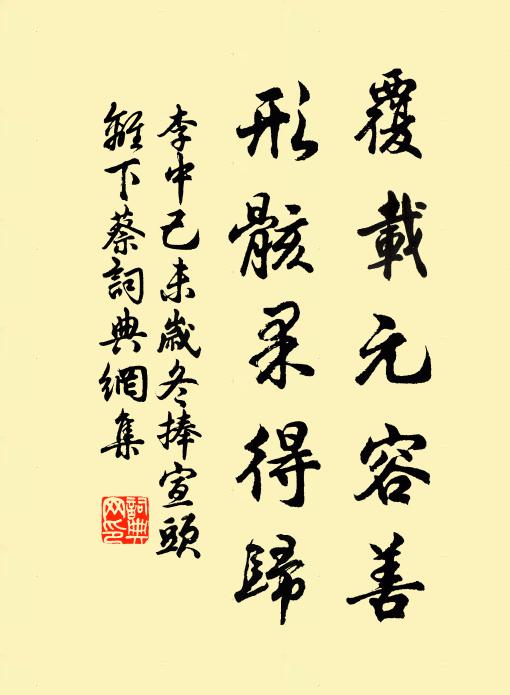 覆載元容善
形骸果得歸
李中己未歲冬捧宣頭
離下蔡詞典網集
詞典网印